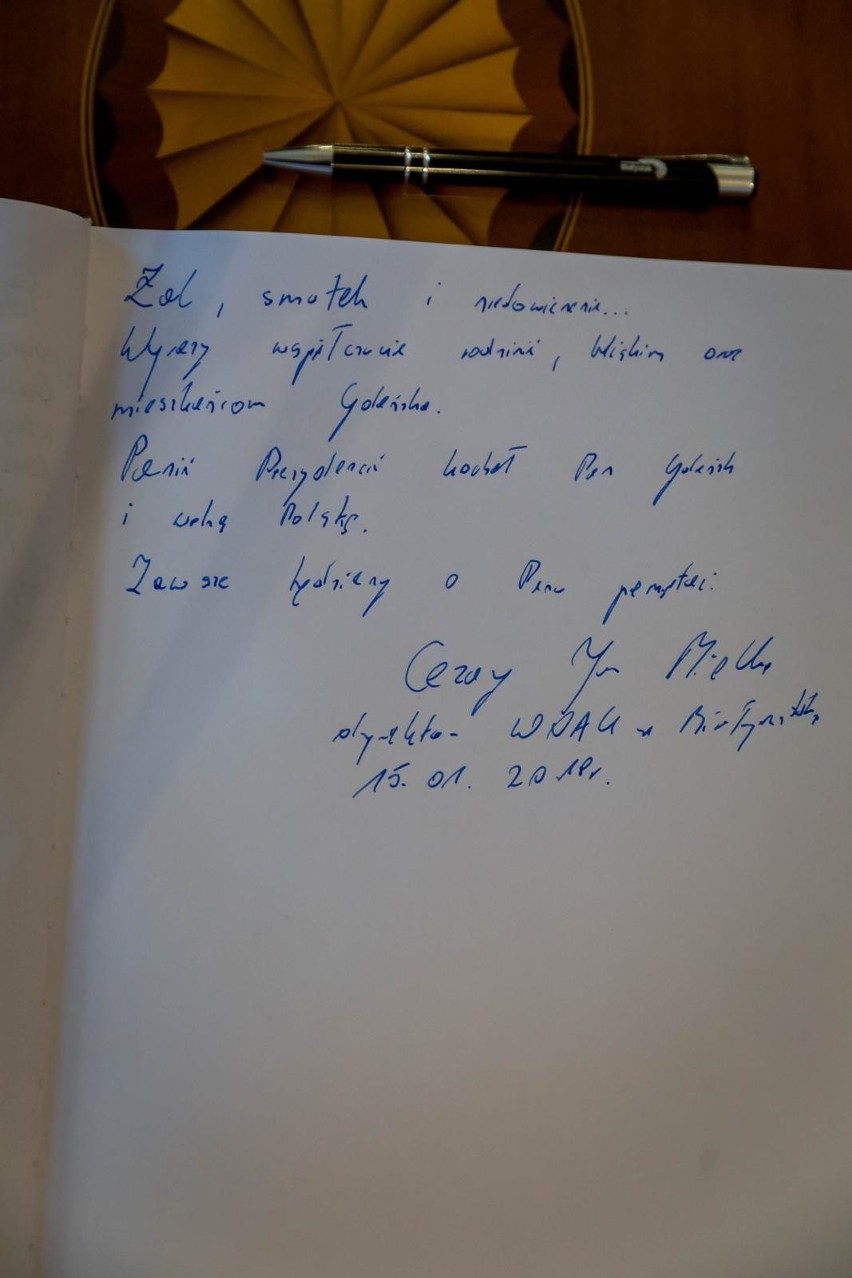 Żal, smutek i niedowierzanie...
Wyrazy współczucia rodzinie, bliskim oraz
mieszkańcom Gdańska.
Panie Prezydencie kochał Pan Gdańsk
i wolną Polskę.
Zawsze będziemy o Panu pamiętać.
Cezary Jan Mielko
dyrektor WOAK w Białymstoku
15.01.2019r.